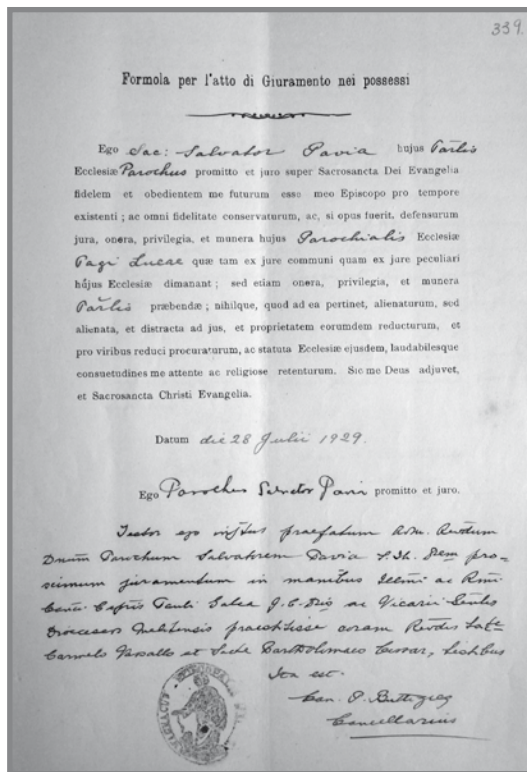 339.
Formola per l'atto di Giuramento nei possessi
Ego Sac: Salvator Pavia hujus Parlis
Ecclesiæ Parochus promitto et juro super Sacrosancta Dei Evangelia
fidelem et obedientem me futurum esse meo Episcopo pro tempore
existenti ; ac omni fidelitate conservaturum, ac, si opus fuerit, defensurum
jura, onera, privilegia, et munera hujus Parochialis Ecclesiæ
Pagi Lucae quæ tam ex jure communi quam ex jure peculiari
hujus Ecclesiæ dimanant ; sed etiam onera, privilegia, et munera
Parlis præbendæ ; nihilque, quod ad ea pertinet, alienaturum, sed
alienata, et distracta ad jus, et proprietatem eorumdem reducturum, et
pro viribus reduci procuraturum, ac statuta Ecclesiæ ejusdem, laudabilesque
consuetudines me attente ac religiose retenturum. Sic me Deus adjuvet,
et Sacrosancta Christi Evangelia.
Datum die 28 Julii 1929.
Ego Parochus Salvator Pavia promitto et juro.
Testor ego praefatum Adm. Revdum
Dnum Parochum Salvatorem Pavia S. Th.
juramentum in manibus Illmi ac Rmi
Pauli Galea J. C. ac Vicarii
Dioceseos Melitensis praestitisse coram Revdis
Carmelo Vassallo et Bartholomaeo testibus
Ita est.
Can. P. Buttigieg
Cancellarius